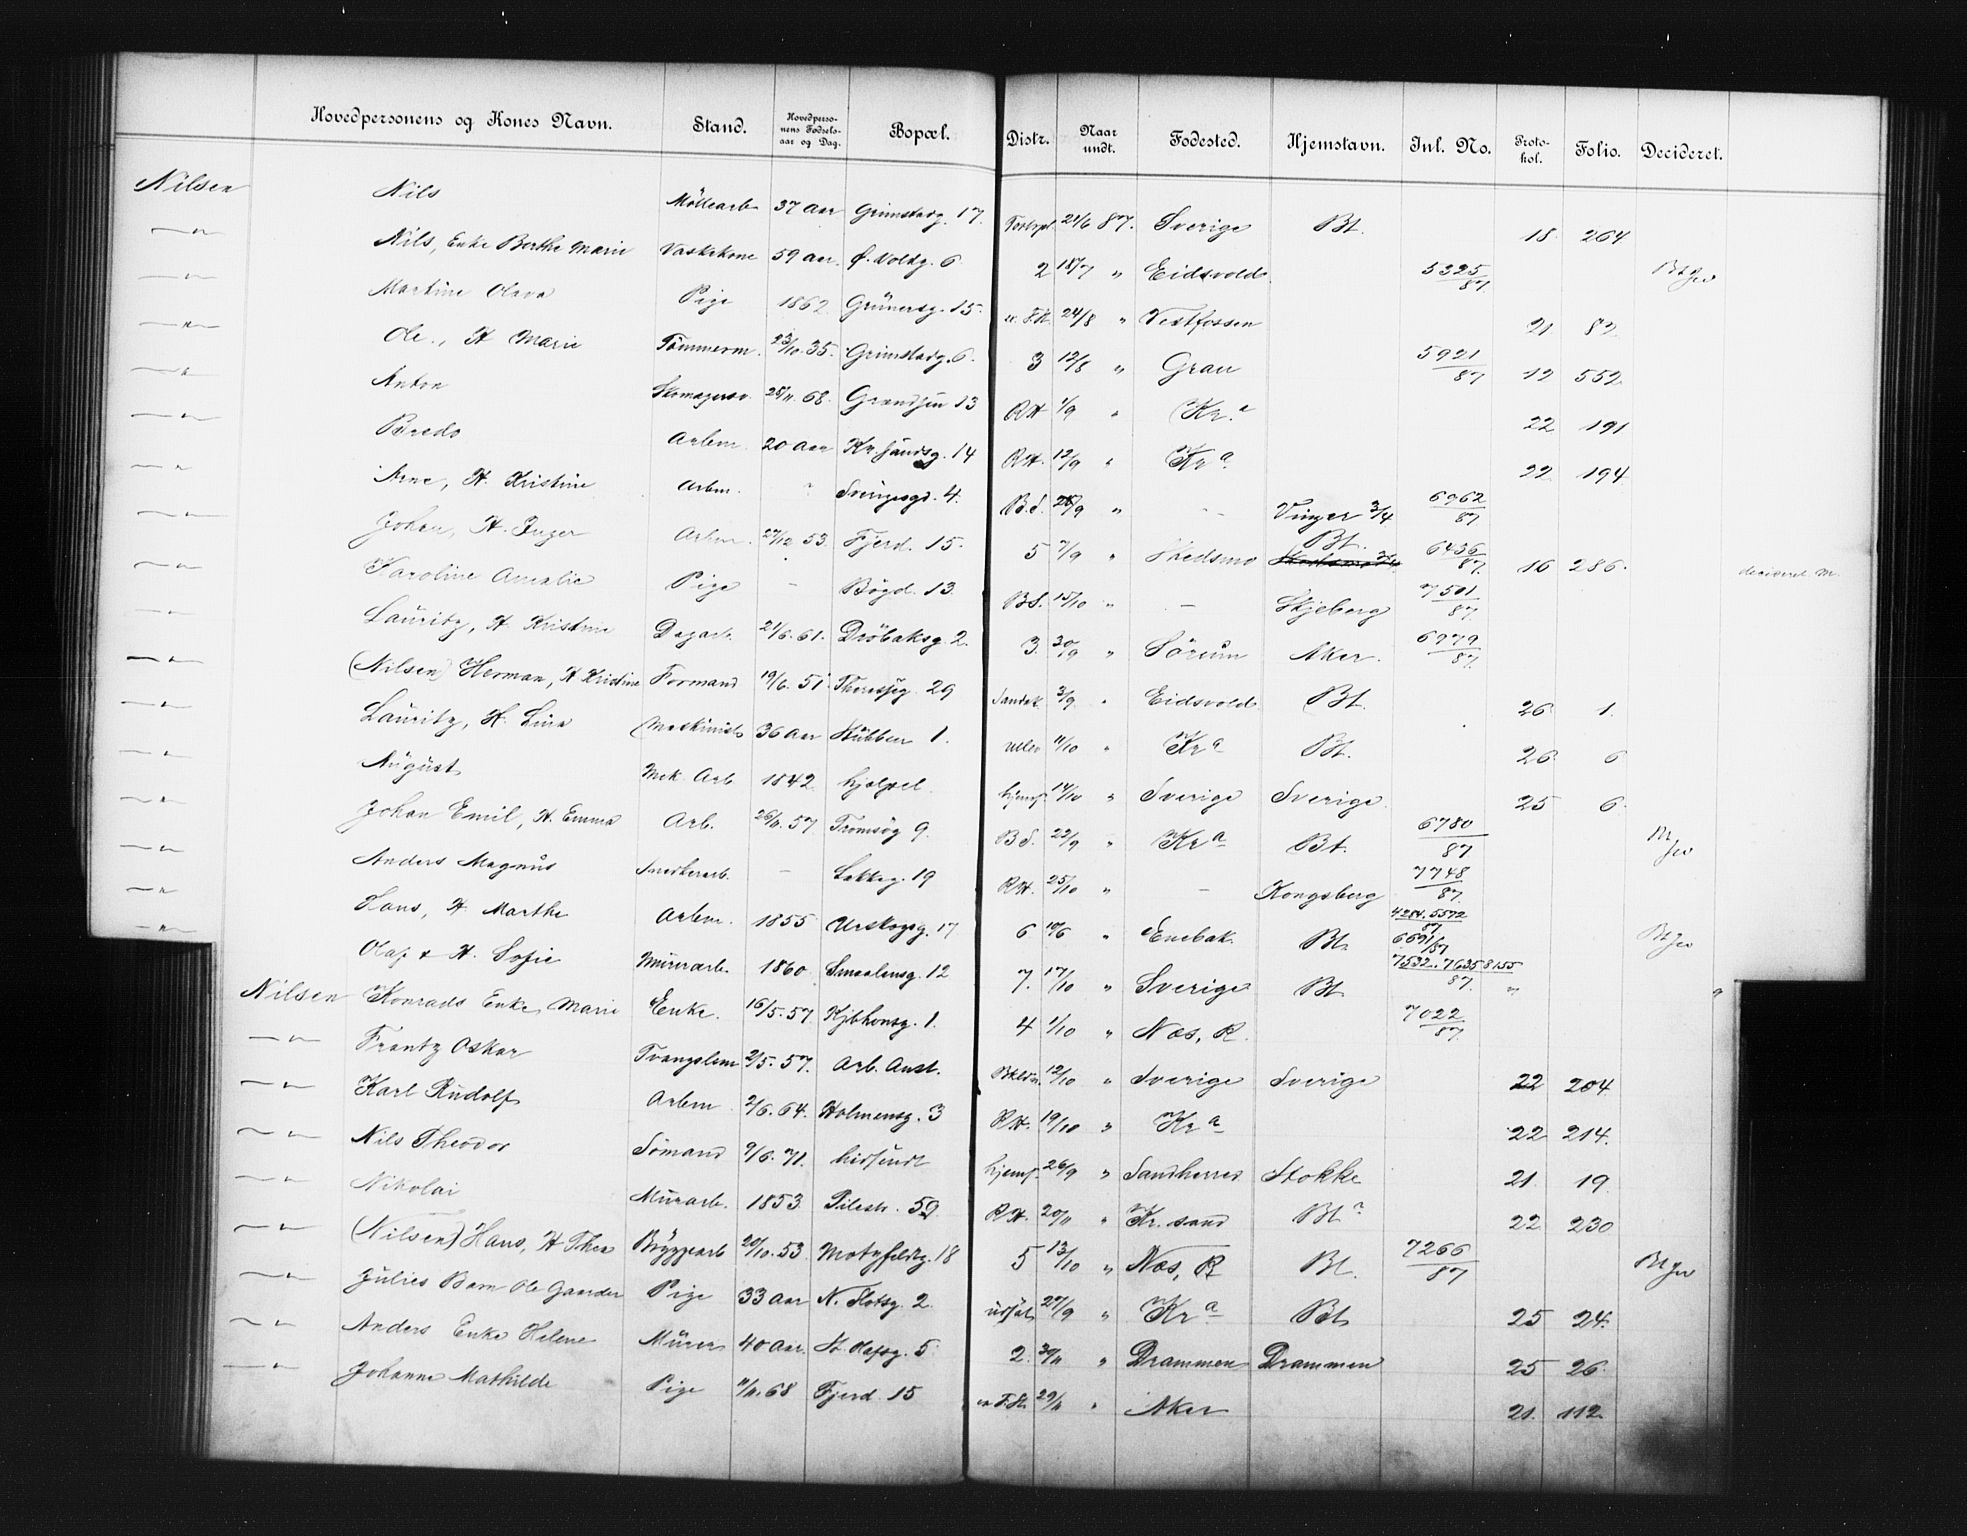 Hovedpersonens og Kones Navn. Stand. Hovedpersonens Fødselsaar og Dag. Bopæl. Distr. Naar undt. Fødested. Hjemstavn. Inl. No. Protokol. Folio. Decideret.
Nilsen Nils Möllearb 37 Aar Grimstadg. 17. 21/6 87. Sverige Bt. 18 264
—"— Nils, Enke Berthe Marie Vaskekone 59 aar. Ø. Voldg. 6 2 18/7 " Eidsvold 5325/87
—"— Martine Olava Pige 1862 Grünersg. 15. 24/8 " Vestfossen 21 82
—"— Ole, H Marie Tömmerm. 23/10. 35. Grimstadg. 6. 3 12/8 " Gran 5921/87 12 552
—"— Anton Skomagersv. 25/11. 68. Grændsen 13 RH 1/9 " Kr.a 22 191
—"— Bredo Arbm 20 aar Kr.sandsg. 14 RH. 12/9 " Kr a 22 194
—"— Arne, H. Kristine Arbm. " Sverigesgd. 4. B.S. 28/9 " — Vinger 3/4 6962/87
—"— Johan, H. Inger Arbm. 27/12 53. Fjerd. 15. 5 7/9 " Skedsmo Bt. 6436/87 16 286. decideret M.
—"— Karoline Amalie Pige — Bögd. 13. BS. 15/10 " — Skjeberg 7501/87
—"— Lauritz, H. Kristine Dagarb. 21/6. 61. Dröbaksg. 2. 3 30/9 " Sörum Aker. 6979/87
—"— (Nilsen) Herman, H Kristine Formand 19/6. 51. Theresesg. 29 Sandak. 3/9. " Eidsvold Bt. 26 1.
—"— Lauritz, H. Lina Maskinist 36 Aar Stubben 1. Ullev 11/10 " Kr a Bt. 26 6
—"— August Mek. Arb 1842. hjælpel. hjemf. 14/10 " Sverige Sverige 25 6.
—"— Johan Emil, H. Emma Arb. 26/6. 57 Tromsög 9. B S. 22/9 " Kr a Bt. 6780/87
—"— Anders Magnus Snedkerarb. — Lakkeg. 19 RH. 25/10 " — Kongsberg 7748/87
—"— Hans, H. Marthe Arbm. 1855 Urskogsg. 17 6 10/6 " Enebak. Bt. 4284. 5572/87 6691/87
—"— Olaf & H. Sofie Murerarb. 1860 Smaalensg. 12 7. 17/10 " Sverige Bt 7532. 7635 8155/87
Nilsen Konrads Enke, Marie Enke. 16/5. 57. Kjbhvnsg. 1. 4 1/10 " Næs, R. 7022/87
—"— Frantz Oskar Tvangslem 2/5. 57. Arb. Anst. 12/10 " Sverige Sverige 22 204
—"— Karl Rudolf Arbm 2/6. 64. Holmensg. 3 RH. 19/10 " Kr a 22 214.
—"— Nils Theodor Sömand 9/6. 71. hidsendt hjemf. 26/9 " Sandherred Stokke 21. 19.
—"— Nikolai Murarb. 1853. Pilestr. 59 RH. 20/11 " Kr. sand Bt? 22 230
—"— (Nilsen) Hans, H Thea Bryggearb 20/10. 53. Motzfeldtg. 18 5 13/10 " Næs, R Bt. 7266/87
—"— Julies Barn Ole Gaarder Pige 33 aar N. Slotsg. 2. udsat 27/9 " Kr a Bt 25 24.
—"— Anders Enke Helene Murer 40 aar. St. Olafsg. 5 2. 30/11 " Drammen Drammen 25 26.
—"— Johanne Mathilde Pige 11/11. 68 Fjerd. 15 29/11 " Aker 21. 112.